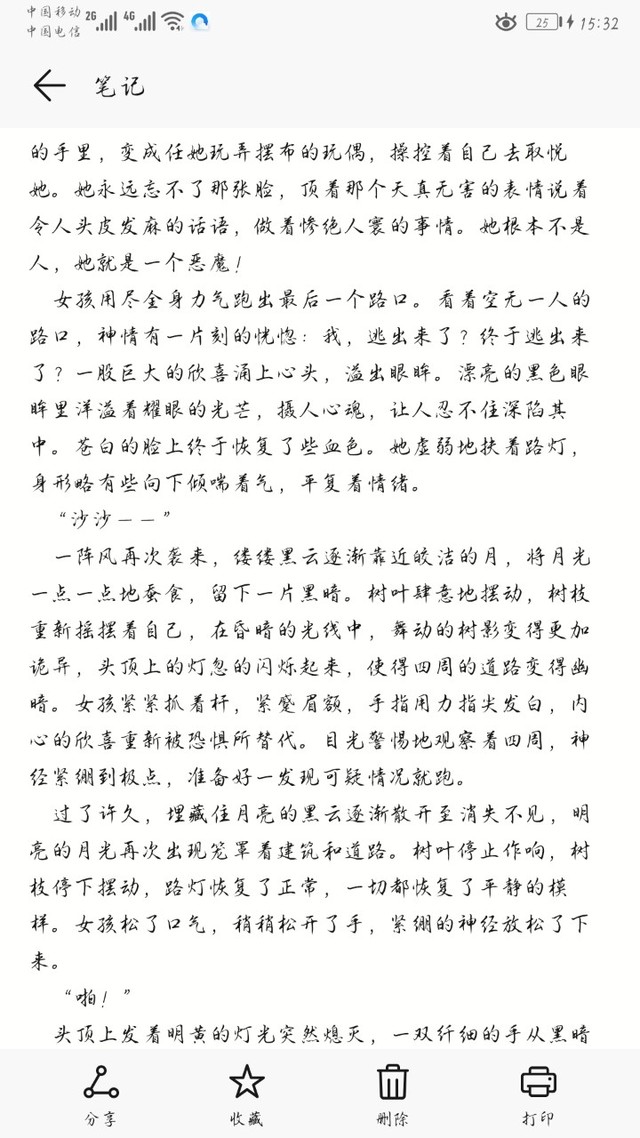 中国移动 2G 4G 25 15:32
中国电信
笔记
的手里，变成任她玩弄摆布的玩偶，操控着自己去取悦
她。她永远忘不了那张脸，顶着那个天真无害的表情说着
令人头皮发麻的话语，做着惨绝人寰的事情。她根本不是
人，她就是一个恶魔！
女孩用尽全身力气跑出最后一个路口。看着空无一人的
路口，神情有一片刻的恍惚：我，逃出来了？终于逃出来
了？一股巨大的欣喜涌上心头，溢出眼眸。漂亮的黑色眼
眸里洋溢着耀眼的光芒，摄人心魂，让人忍不住深陷其
中。苍白的脸上终于恢复了些血色。她虚弱地扶着路灯，
身形略有些向下倾喘着气，平复着情绪。
“沙沙——”
一阵风再次袭来，缕缕黑云逐渐靠近皎洁的月，将月光
一点一点地蚕食，留下一片黑暗。树叶肆意地摆动，树枝
重新摇摆着自己，在昏暗的光线中，舞动的树影变得更加
诡异，头顶上的灯忽的闪烁起来，使得四周的道路变得幽
暗。女孩紧紧抓着杆，紧蹙眉额，手指用力指尖发白，内
心的欣喜重新被恐惧所替代。目光警惕地观察着四周，神
经紧绷到极点，准备好一发现可疑情况就跑。
过了许久，埋藏住月亮的黑云逐渐散开至消失不见，明
亮的月光再次出现笼罩着建筑和道路。树叶停止作响，树
枝停下摆动，路灯恢复了正常，一切都恢复了平静的模
样。女孩松了口气，稍稍松开了手，紧绷的神经放松了下
来。
“啪！”
头顶上发着明黄的灯光突然熄灭，一双纤细的手从黑暗
分享 收藏 删除 打印